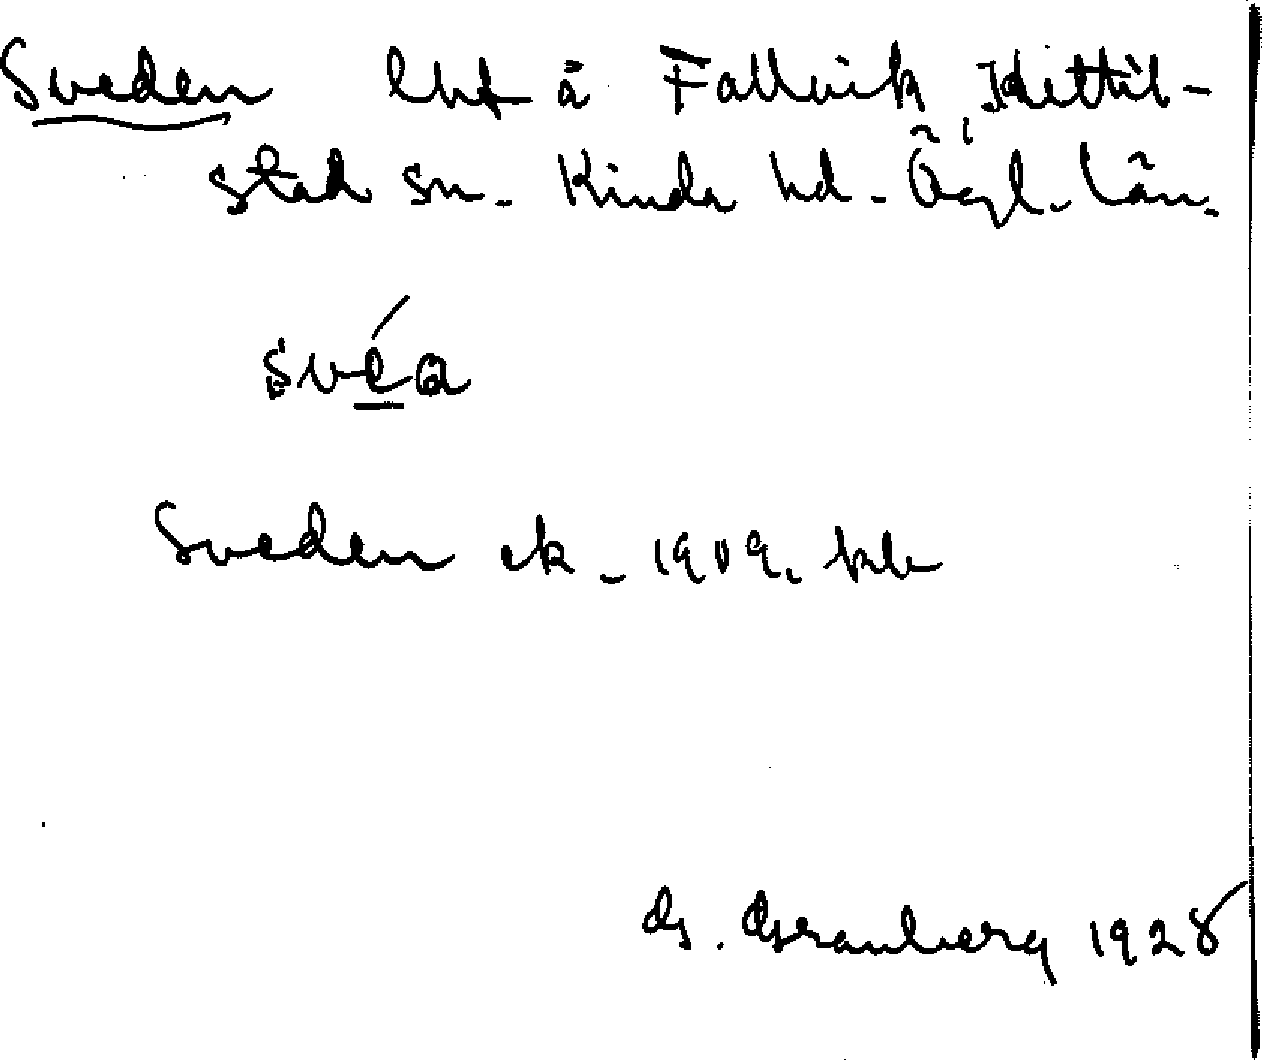 Sweden lht å Fallvik, Kettil-
stad sn. Kinda hd. Ögl. län.
svéa
Sweden ek. 1909. kb
G. Granberg 1928